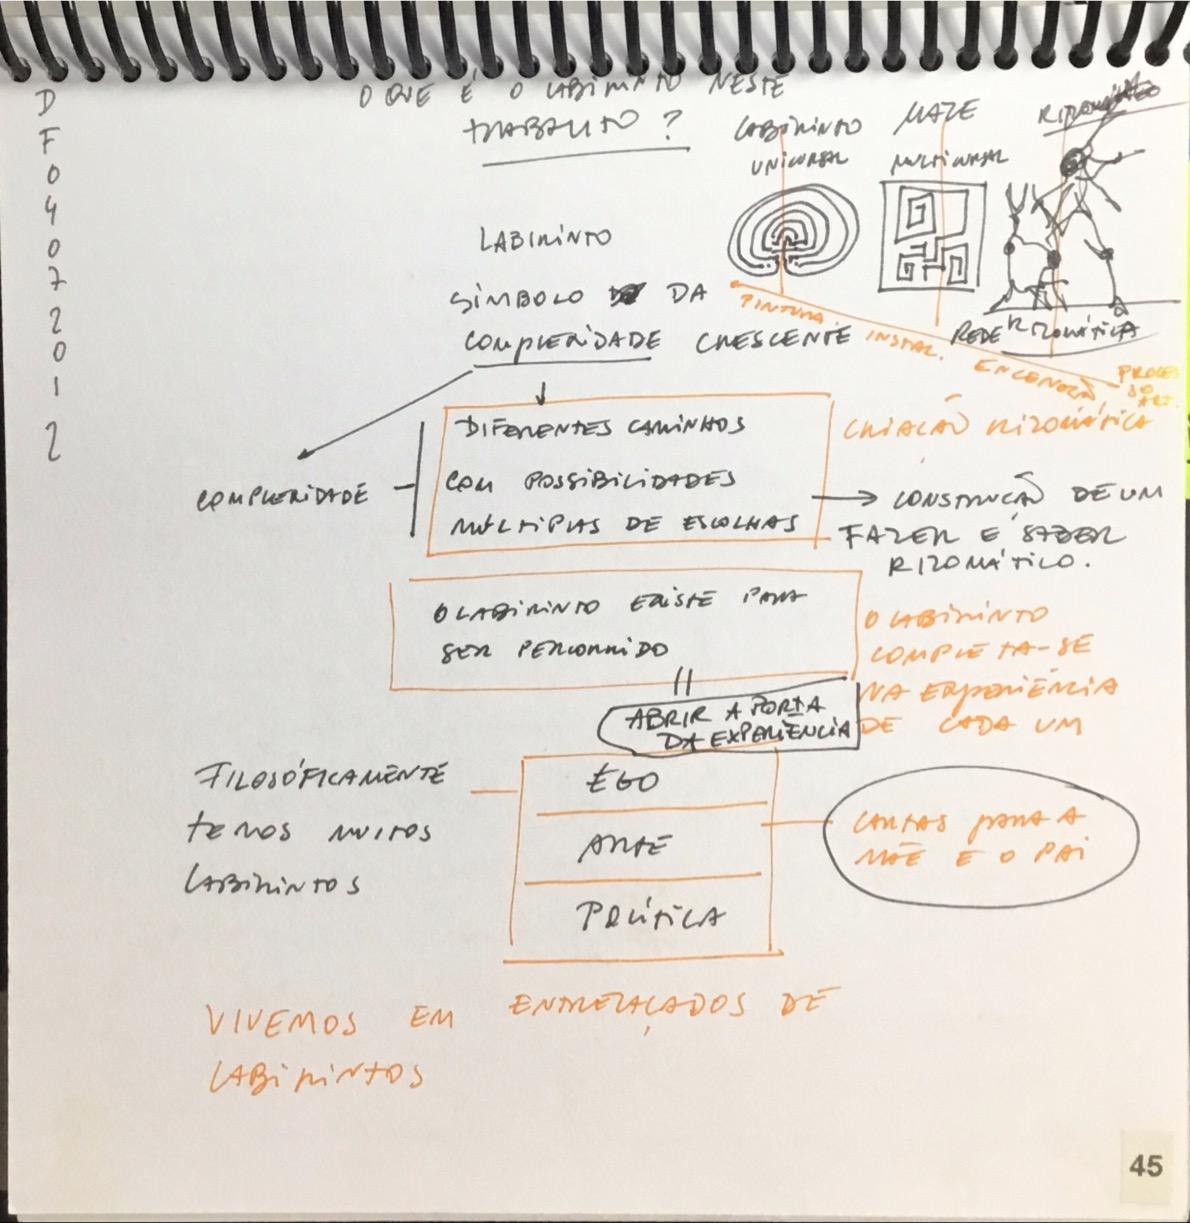 DF04072012
O QUE É O LABIRINTO NESTE
TRABALHO?
LABIRINTO
UNICURSAL
MAZE
MULTICURSAL
LABIRINTO
SÍMBOLO DA
COMPLEXIDADE CRESCENTE
PINTURA
INSTAL.
ENCENAÇÃO
REDE RIZOMÁTICA
CRIAÇÃO RIZOMÁTICA
COMPLEXIDADE
DIFERENTES CAMINHOS
COM POSSIBILIDADES
MÚLTIPLAS DE ESCOLHAS
CONSTRUÇÃO DE UM
FAZER E SABER
RIZOMÁTICO.
O LABIRINTO EXISTE PARA
SER PERCORRIDO
O LABIRINTO
COMPLETA-SE
NA EXPERIÊNCIA
DE CADA UM
ABRIR A PORTA
DA EXPERIÊNCIA
FILOSÓFICAMENTE
TEMOS MUITOS
LABIRINTOS
EGO
ARTE
POLÍTICA
CARTAS PARA A
MÃE E O PAI
VIVEMOS EM ENTRELAÇADOS DE
LABIRINTOS
45